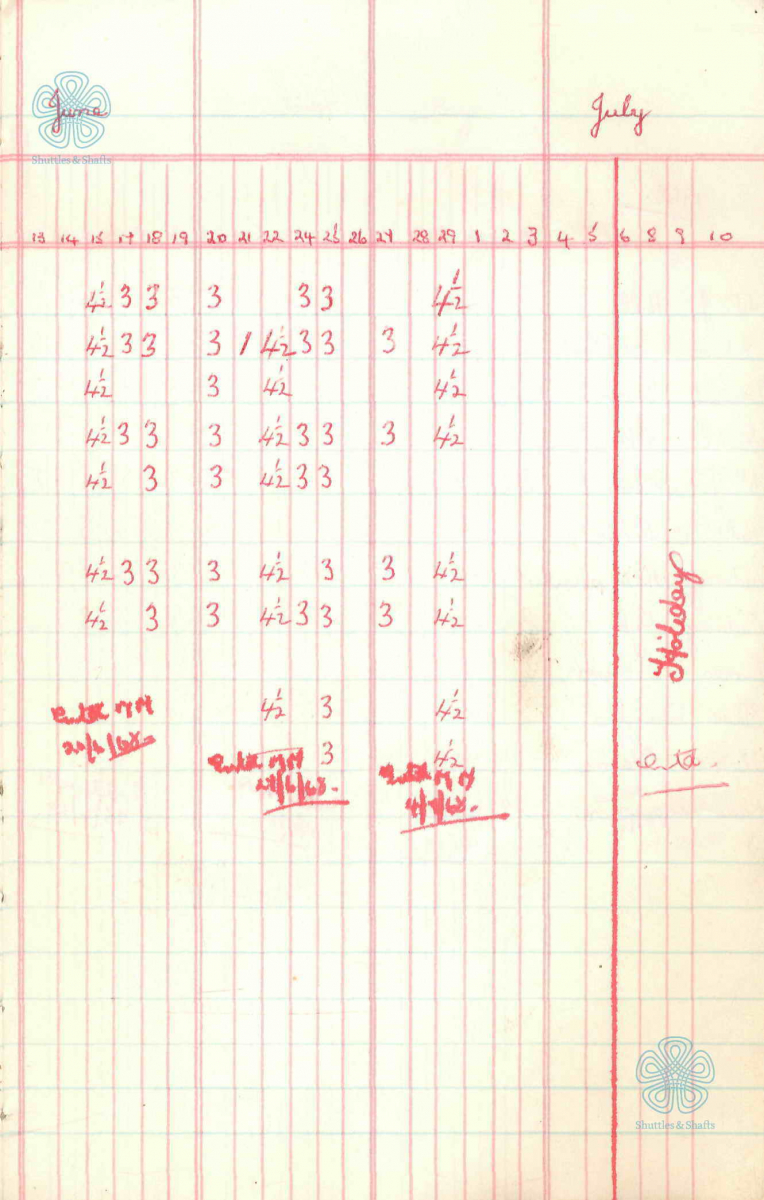 June July
Shuttles & Shafts
13 14 15 17 18 19 20 21 22 24 25 26 27 28 29 1 2 3 4 5 6 8 9 10
4½ 3 3 3 3 3 4½
4½ 3 3 3 1 4½ 3 3 3 4½
4½ 3 4½ 4½
4½ 3 3 3 4½ 3 3 3 4½
4½ 3 3 4½ 3 3
4½ 3 3 3 4½ 3 3 4½
4½ 3 3 4½ 3 3 3 4½
Holiday
4½ 3 4½
3 4½
27/6/68.
4/7/68.
Shuttles & Shafts